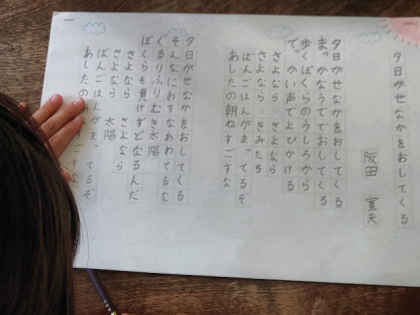 夕日がせなかをおしてくる
阪田 寛夫
夕日がせなかをおしてくる
まっかなうででおしてくる
歩くぼくらのうしろから
でっかい声でよびかける
さよなら さよなら
さよなら きみたち
ばんごはんがまってるぞ
あしたの朝ねすごすな
夕日がせなかをおしてくる
そんなにおすなあわてるな
ぐるりふりむき太陽に
ぼくらも負けずどなるんだ
さよなら さよなら
さよなら 太陽
ばんごはんがまってるぞ
あしたの ごすな